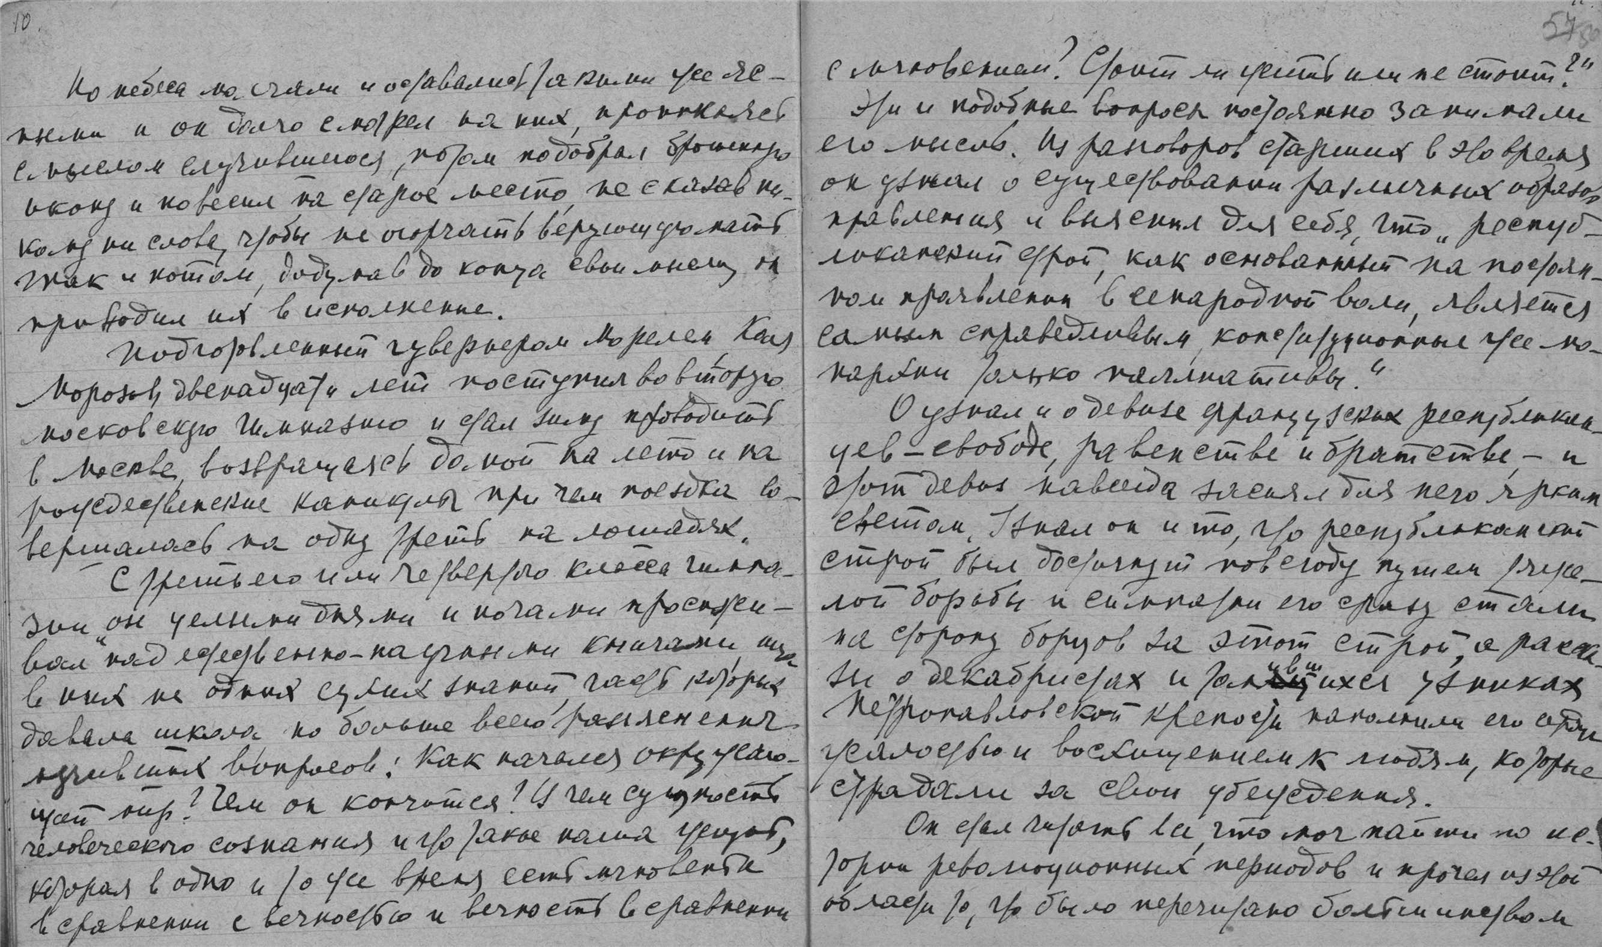 10.
Но небеса молчали и оставались такими же яс-
ными и он долго смотрел на них, проникаясь
смыслом случившегося, потом подобрал брошенную
икону и повесил на старое место, не сказав ни-
кому ни слова, чтобы не огорчать верующую мать
так и потом, додумав до конца свои мысли, он
приводил их в исполнение.
Подготовленный гувернером Морелем, Коля
Морозов двенадцати лет поступил во вторую
московскую гимназию и стал зиму проводить
в Москве, возвращаясь домой на лето и на
рождественские каникулы при чем поездка со-
вершалась на одну треть на лошадях.
С третьего или четвертого класса гимна-
зии "он целыми днями и ночами просижи-
вал" над естественно-научными книгами, ища
в них не одних сухих знаний, часть которых
давала школа но больше всего разъяснения
мучивших вопросов: Как начался окружаю-
щий мир? Чем он кончится? И чем сущность
человеческого сознания и что такое наша жизнь,
которая в одно и то же время есть мгновенье
в сравнении с вечностью и вечность в сравнении
57
с мгновением? Стоит ли жить или не стоит?"
Эти и подобные вопросы постоянно занимали
его мысль. Из разговоров старших в это время
он узнал о существовании различных образов
правления и выяснил для себя, что "респуб-
ликанский строй, как основанный на постоян-
ном проявлении всенародной воли, является
самым справедливым, конституционные же мо-
нархии только паллиативы."
О узнал и о девизе французских республикан-
цев – свободе, равенстве и братстве, – и
этот девиз навсегда засиял для него ярким
светом. Узнал он и то, что республиканский
строй был достигнут повсюду путем тяже-
лой борьбы и симпатии его сразу стали
на сторону борцов за этот строй, а расска-
зы о декабристах и томившихся узниках
Петропавловской крепости наполнили его сердце
жалостью и восхищением к людям, которые
страдали за свои убеждения.
Он стал читать все, что мог найти по ис-
тории революционных периодов и прочел из этой
области то, что было перечитано большинством